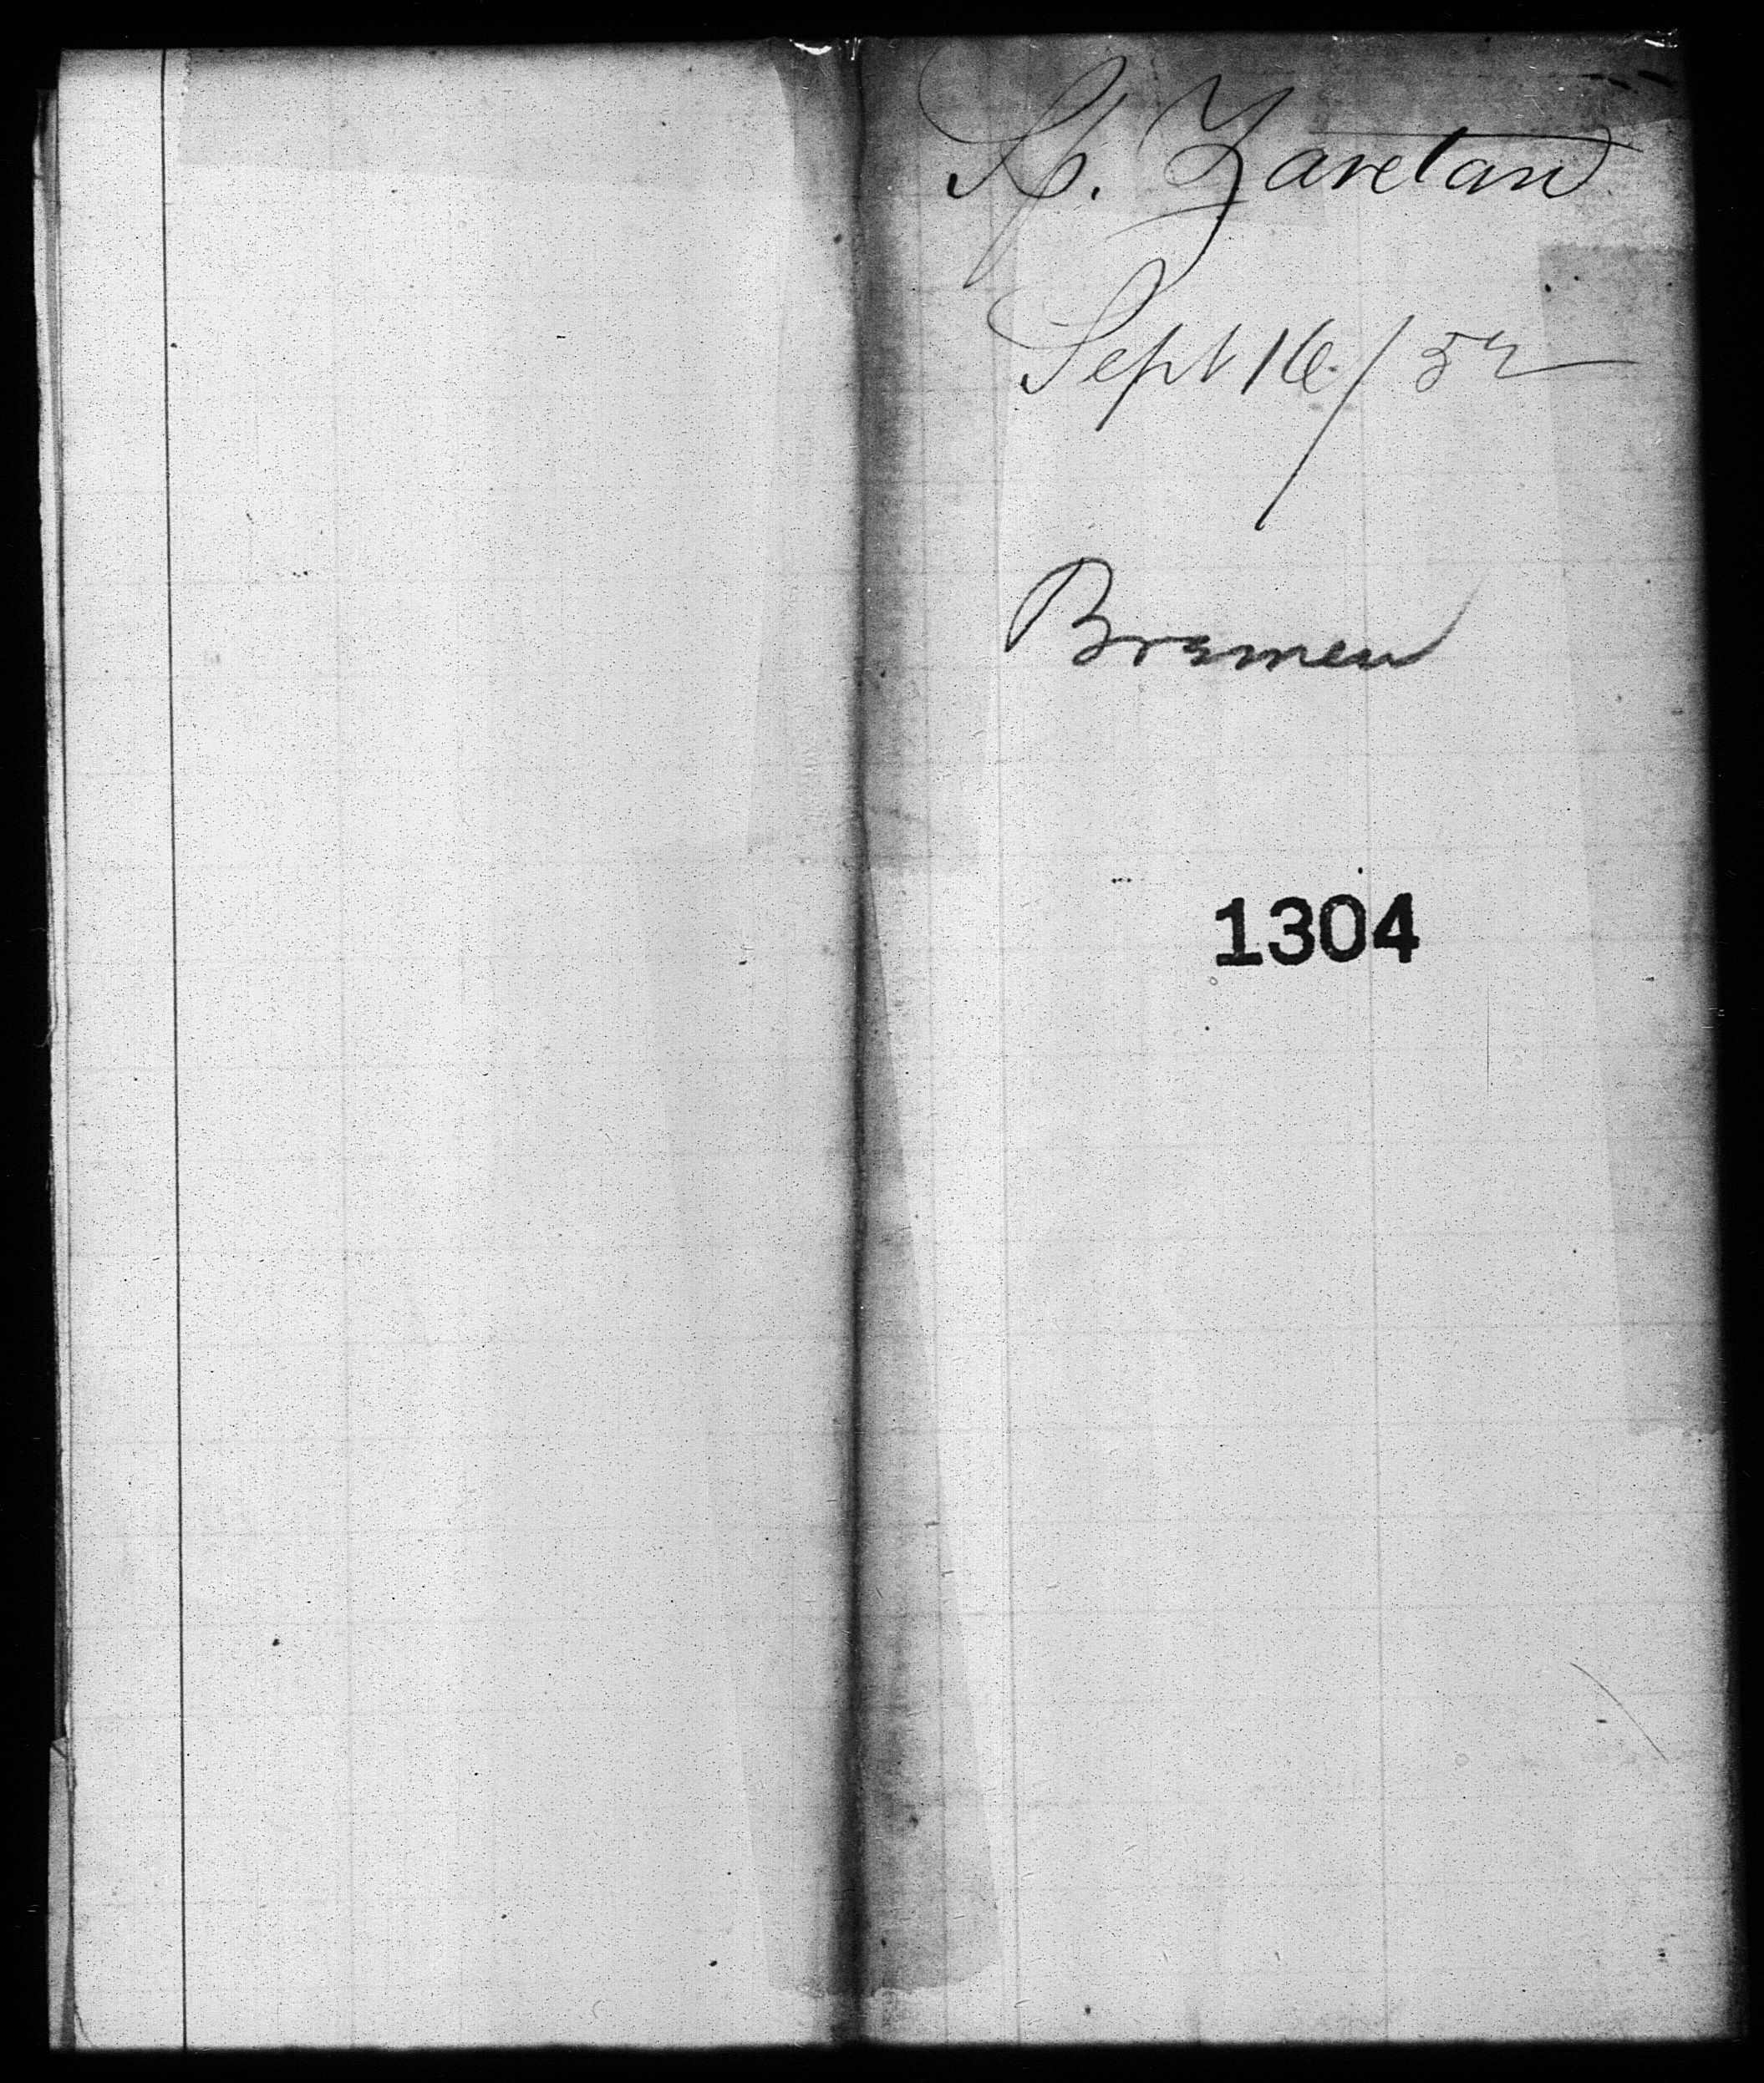 Sp. Zaretan
Sept 16/52
Bremen
1304